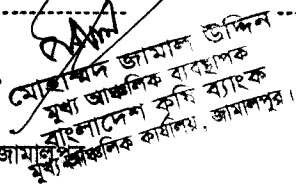 মোহাম্মদ জামাল উদ্দিন
মুখ্য আঞ্চলিক ব্যবস্থাপক
বাংলাদেশ কৃষি ব্যাংক
মুখ্য আঞ্চলিক কার্যালয়, জামালপুর।
জামালপুর